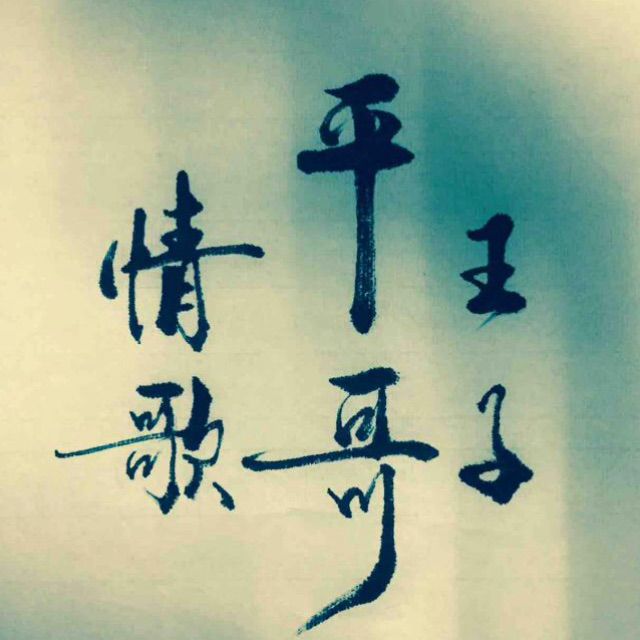 王子
平哥
情歌